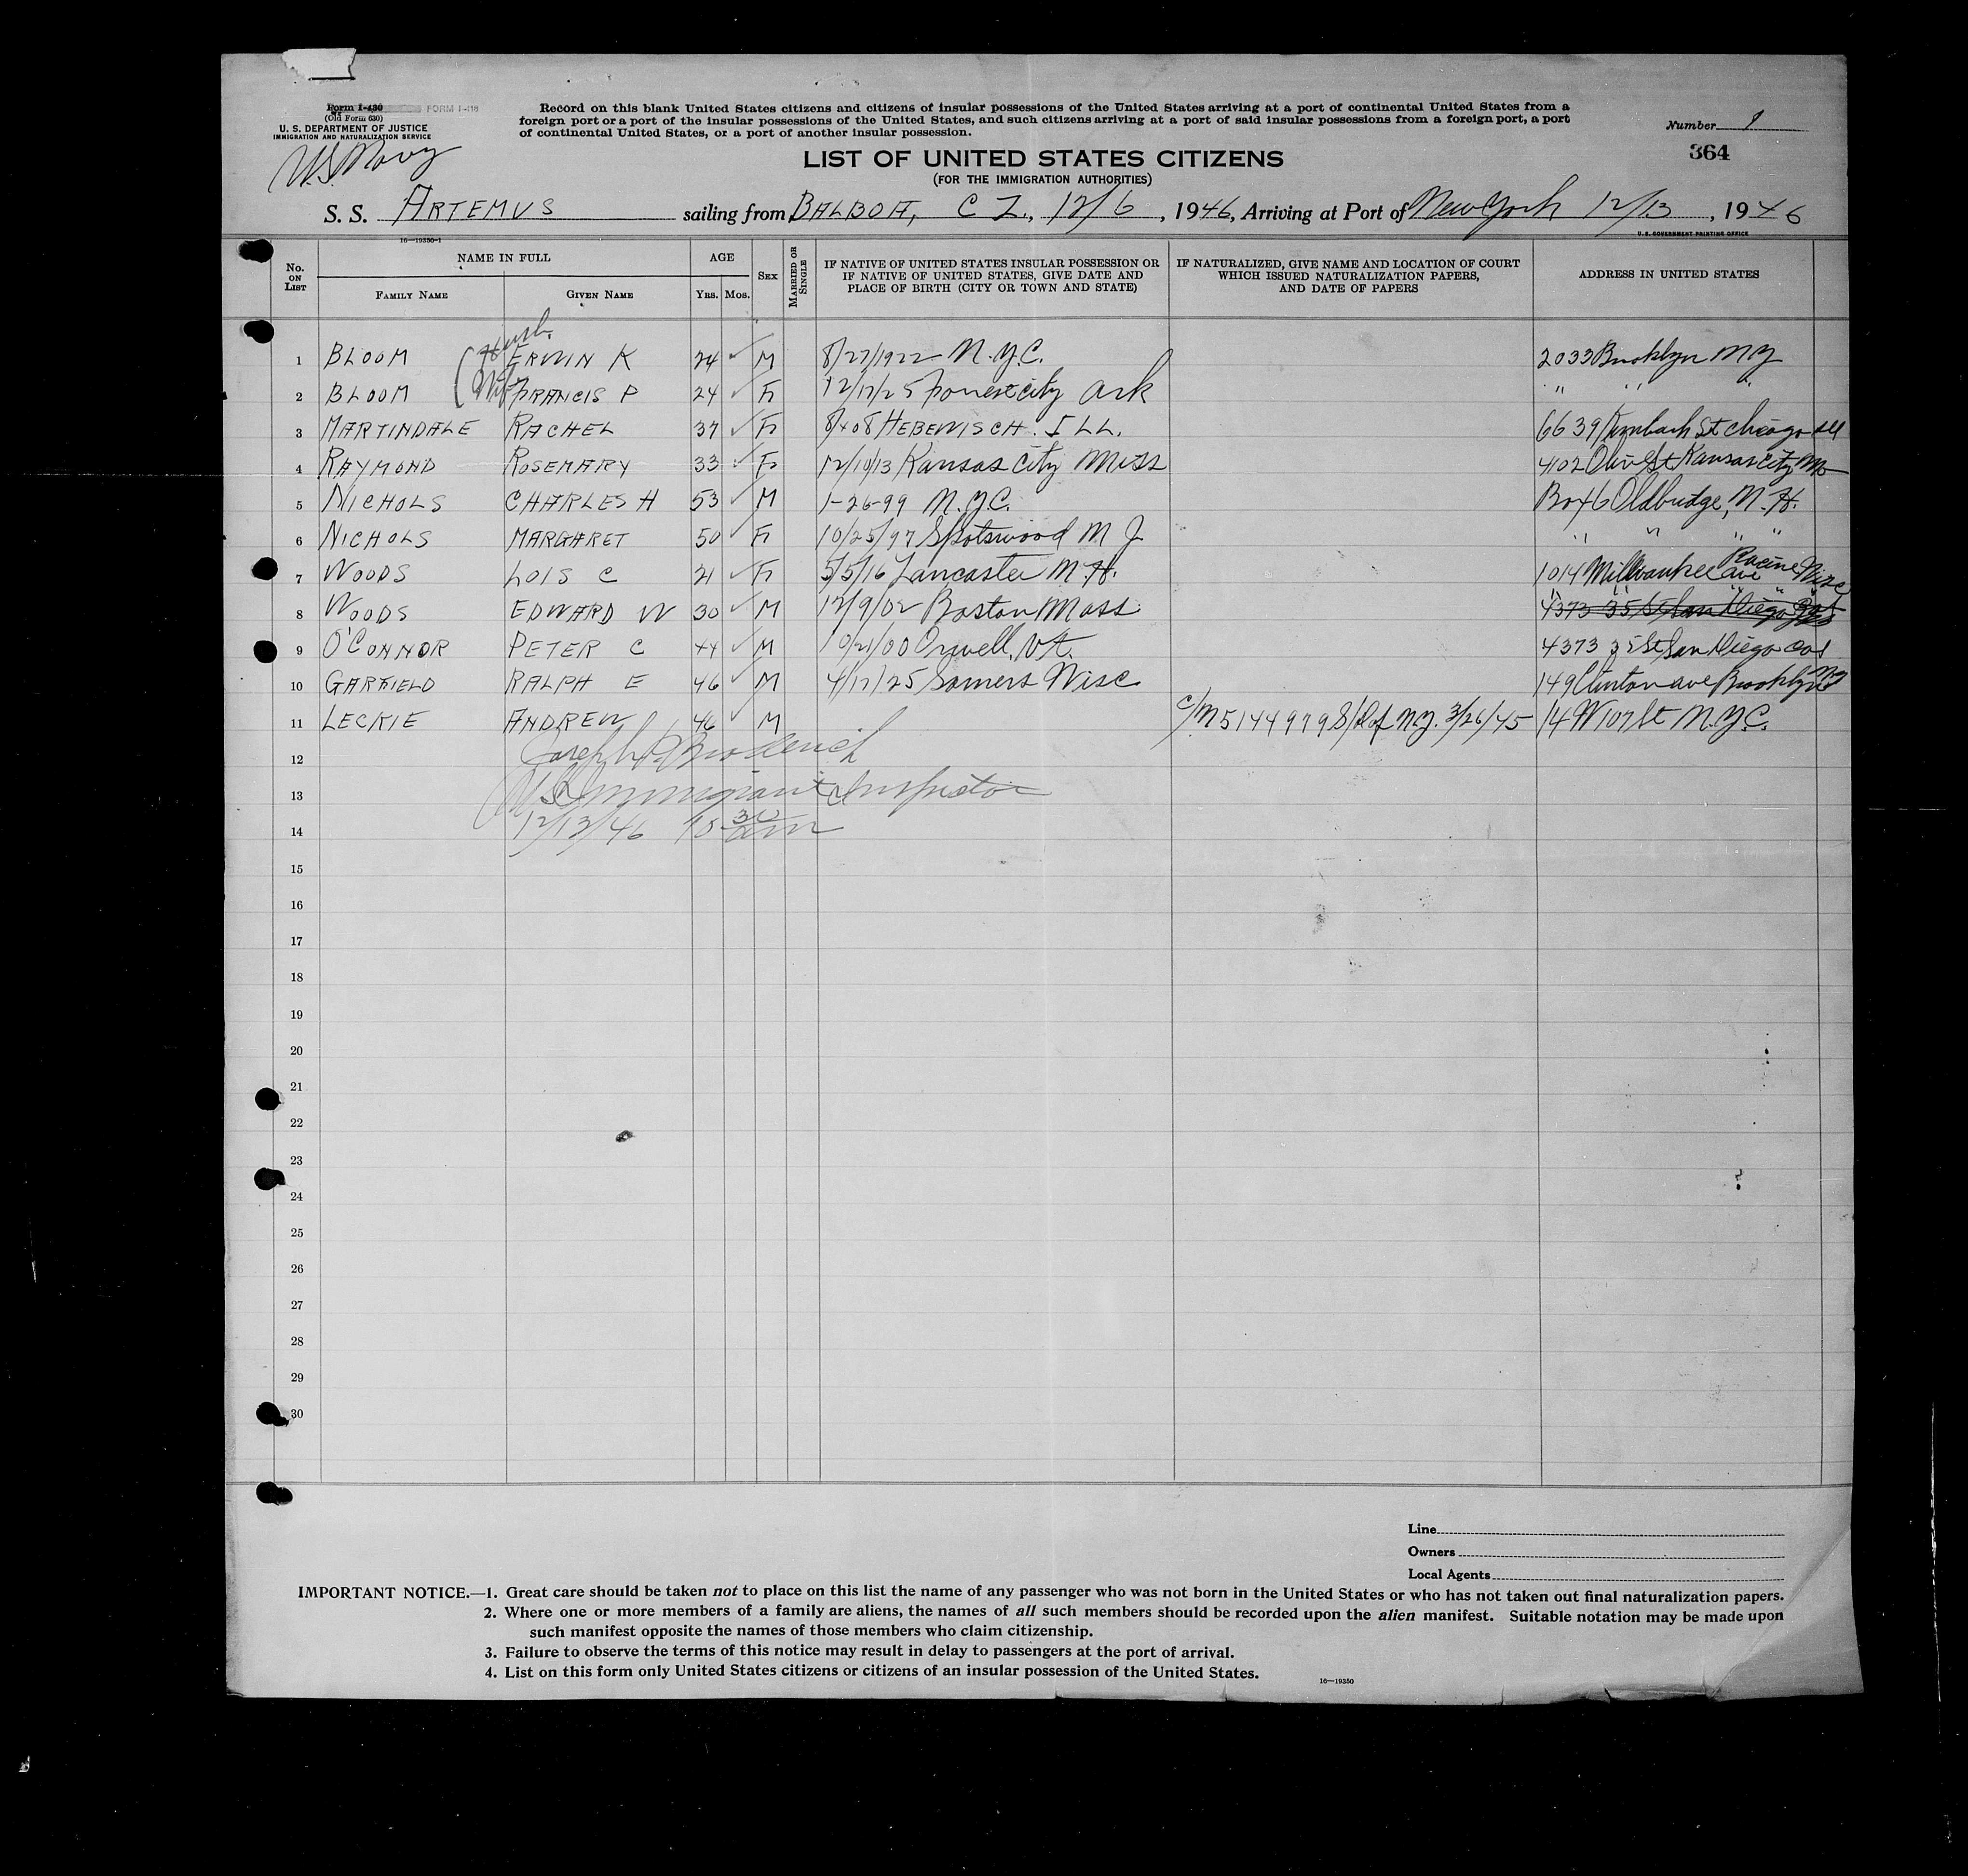 Form I-430 FORM I-418
(Old Form 630)
U. S. DEPARTMENT OF JUSTICE
IMMIGRATION AND NATURALIZATION SERVICE
U.S. Navy
Record on this blank United States citizens and citizens of insular possessions of the United States arriving at a port of continental United States from a
foreign port or a port of the insular possessions of the United States, and such citizens arriving at a port of said insular possessions from a foreign port, a port
of continental United States, or a port of another insular possession.
Number 1
364
LIST OF UNITED STATES CITIZENS
(FOR THE IMMIGRATION AUTHORITIES)
S. S. ARTEMUS sailing from BALBOA, C Z., 12/6, 1946, Arriving at Port of New York 12/13, 1946
16—19350-1
U. S. GOVERNMENT PRINTING OFFICE
No. ON LIST
NAME IN FULL
FAMILY NAME
GIVEN NAME
AGE
YRS. MOS.
SEX
MARRIED OR SINGLE
IF NATIVE OF UNITED STATES INSULAR POSSESSION OR
IF NATIVE OF UNITED STATES, GIVE DATE AND
PLACE OF BIRTH (CITY OR TOWN AND STATE)
IF NATURALIZED, GIVE NAME AND LOCATION OF COURT
WHICH ISSUED NATURALIZATION PAPERS,
AND DATE OF PAPERS
ADDRESS IN UNITED STATES
1 BLOOM Husb. ERWIN K 24 ✓ M 8/27/1922 N.Y.C. 2033 Brooklyn NY
2 BLOOM Wife FRANCIS P 24 ✓ F 12/17/25 city Ark " " "
3 MARTINDALE RACHEL 37 ✓ F ILL. 6639 St Chicago Ill
4 RAYMOND ROSEMARY 33 ✓ F 12/10/13 Kansas City Miss 4102 Olive St Kansas City Mo
5 NICHOLS CHARLES H 53 ✓ M 1-26-99 N.Y.C. Box 6 Oldbridge, N.H.
6 NICHOLS MARGARET 50 ✓ F 10/25/97 Spotswood N J " " " "
7 WOODS LOIS C 21 ✓ F 5/5/16 Lancaster N.H. 1014 Milwaukee Ave Racine Wisc
8 WOODS EDWARD W 30 ✓ M 12/9/02 Boston Mass " " " " 4373 35 St San Diego
9 O'CONNOR PETER C 44 ✓ M 10/21/00 Orwell, Vt. 4373 35 St San Diego Cal
10 GARFIELD RALPH E 46 ✓ M 4/17/25 Somers Wisc 149 Clinton ave Brooklyn NY
11 LECKIE ANDREW 46 ✓ M C/N 5144979 S/D of N.Y. 3/26/45 14 W 107 St N.Y.C.
12 Joseph
13 U.S. Immigrant Inspector
14 12/13/46 10 30 am
15
16
17
18
19
20
21
22
23
24
25
26
27
28
29
30
Line
Owners
Local Agents
IMPORTANT NOTICE.—1. Great care should be taken not to place on this list the name of any passenger who was not born in the United States or who has not taken out final naturalization papers.
2. Where one or more members of a family are aliens, the names of all such members should be recorded upon the alien manifest. Suitable notation may be made upon
such manifest opposite the names of those members who claim citizenship.
3. Failure to observe the terms of this notice may result in delay to passengers at the port of arrival.
4. List on this form only United States citizens or citizens of an insular possession of the United States.
16—19350